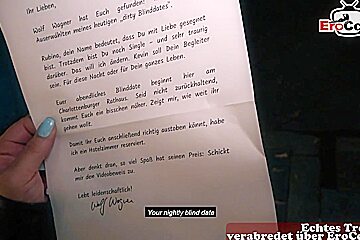 Ihr Lieben,
Wolf Wagner hat Euch gefunden:
Auserwählten meines heutigen „dirty Blinddates".
Rubina, dein Name bedeutet, dass Du mit Liebe gesegnet
bist. Trotzdem bist Du noch Single - und sehr traurig
darüber. Das will ich ändern. Kevin soll Dein Begleiter
sein. Für diese Nacht oder für Dein ganzes Leben.
Euer abendliches Blinddate beginnt hier am
Charlottenburger Rathaus. Seid nicht zurückhaltend,
kommt Euch ein bisschen näher. Zeigt mir, wie weit ihr
gehen wollt.
Damit ihr Euch anschließend richtig austoben könnt, habe
ich ein Hotelzimmer reserviert.
Aber denkt dran, so viel Spaß hat seinen Preis: Schickt
mir den Videobeweis zu.
Lebt leidenschaftlich!
Wolf Wagner
Your nightly blind date
EroCo
Echtes T
verabredet über EroCo